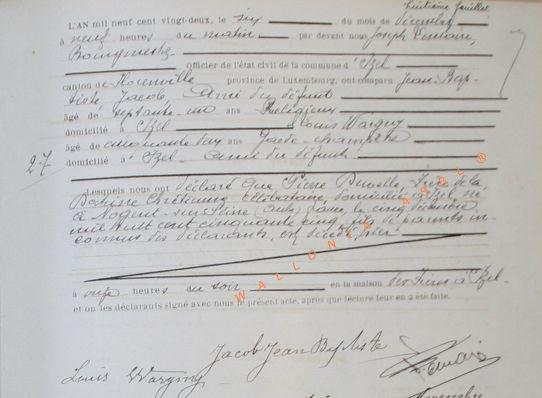 huitième feuillet
L'AN mil neuf cent vingt-deux, le six du mois de Décembre
à neuf heures du matin par devant nous Joseph Lemaire,
Bourgmestre
Officier de l'état civil de la commune d'Izel
canton de Florenville province de Luxembourg, ont comparu Jean-Bap-
tiste Jacob, Ami du défunt
âgé de septante-un ans Religieux
domicilié à Izel Louis Wargny
âgé de cinquante deux ans Garde-champêtre
27
domicilié à Izel - ami du défunt
Lesquels nous ont déclaré que Pierre Duvelle, Frère de la
Doctrine Chrétienne célibataire, domicilié à Izel, né
à Nogent-sur-Seine, Aube, le cinq
mil huit cent cinquante cinq, fils de parents in-
connus des déclarants, est décédé hier
à onze heures du soir, en la maison des Frères à Izel-
et ont les déclarants signé avec nous le présent acte, après que lecture leur en a été faite.
WALLONIA ASBL ®
Jacob Jean Baptiste
Louis Wargny
J. Lemaire